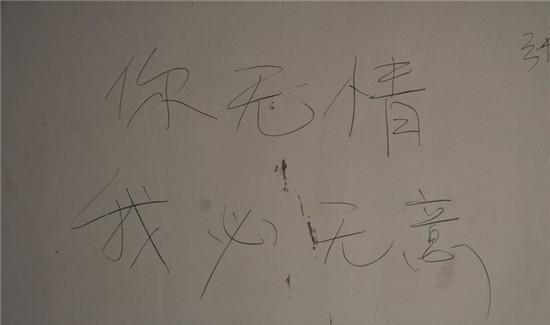 你无情
我必无意